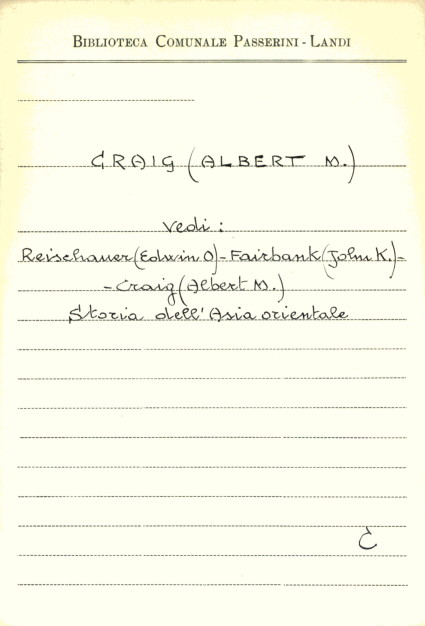 BIBLIOTECA COMUNALE PASSERINI - LANDI
CRAIG (ALBERT M.)
Vedi:
Reischauer (Edwin O) - Fairbank (John K.) -
- Craig (Albert M.)
Storia dell'Asia orientale
C